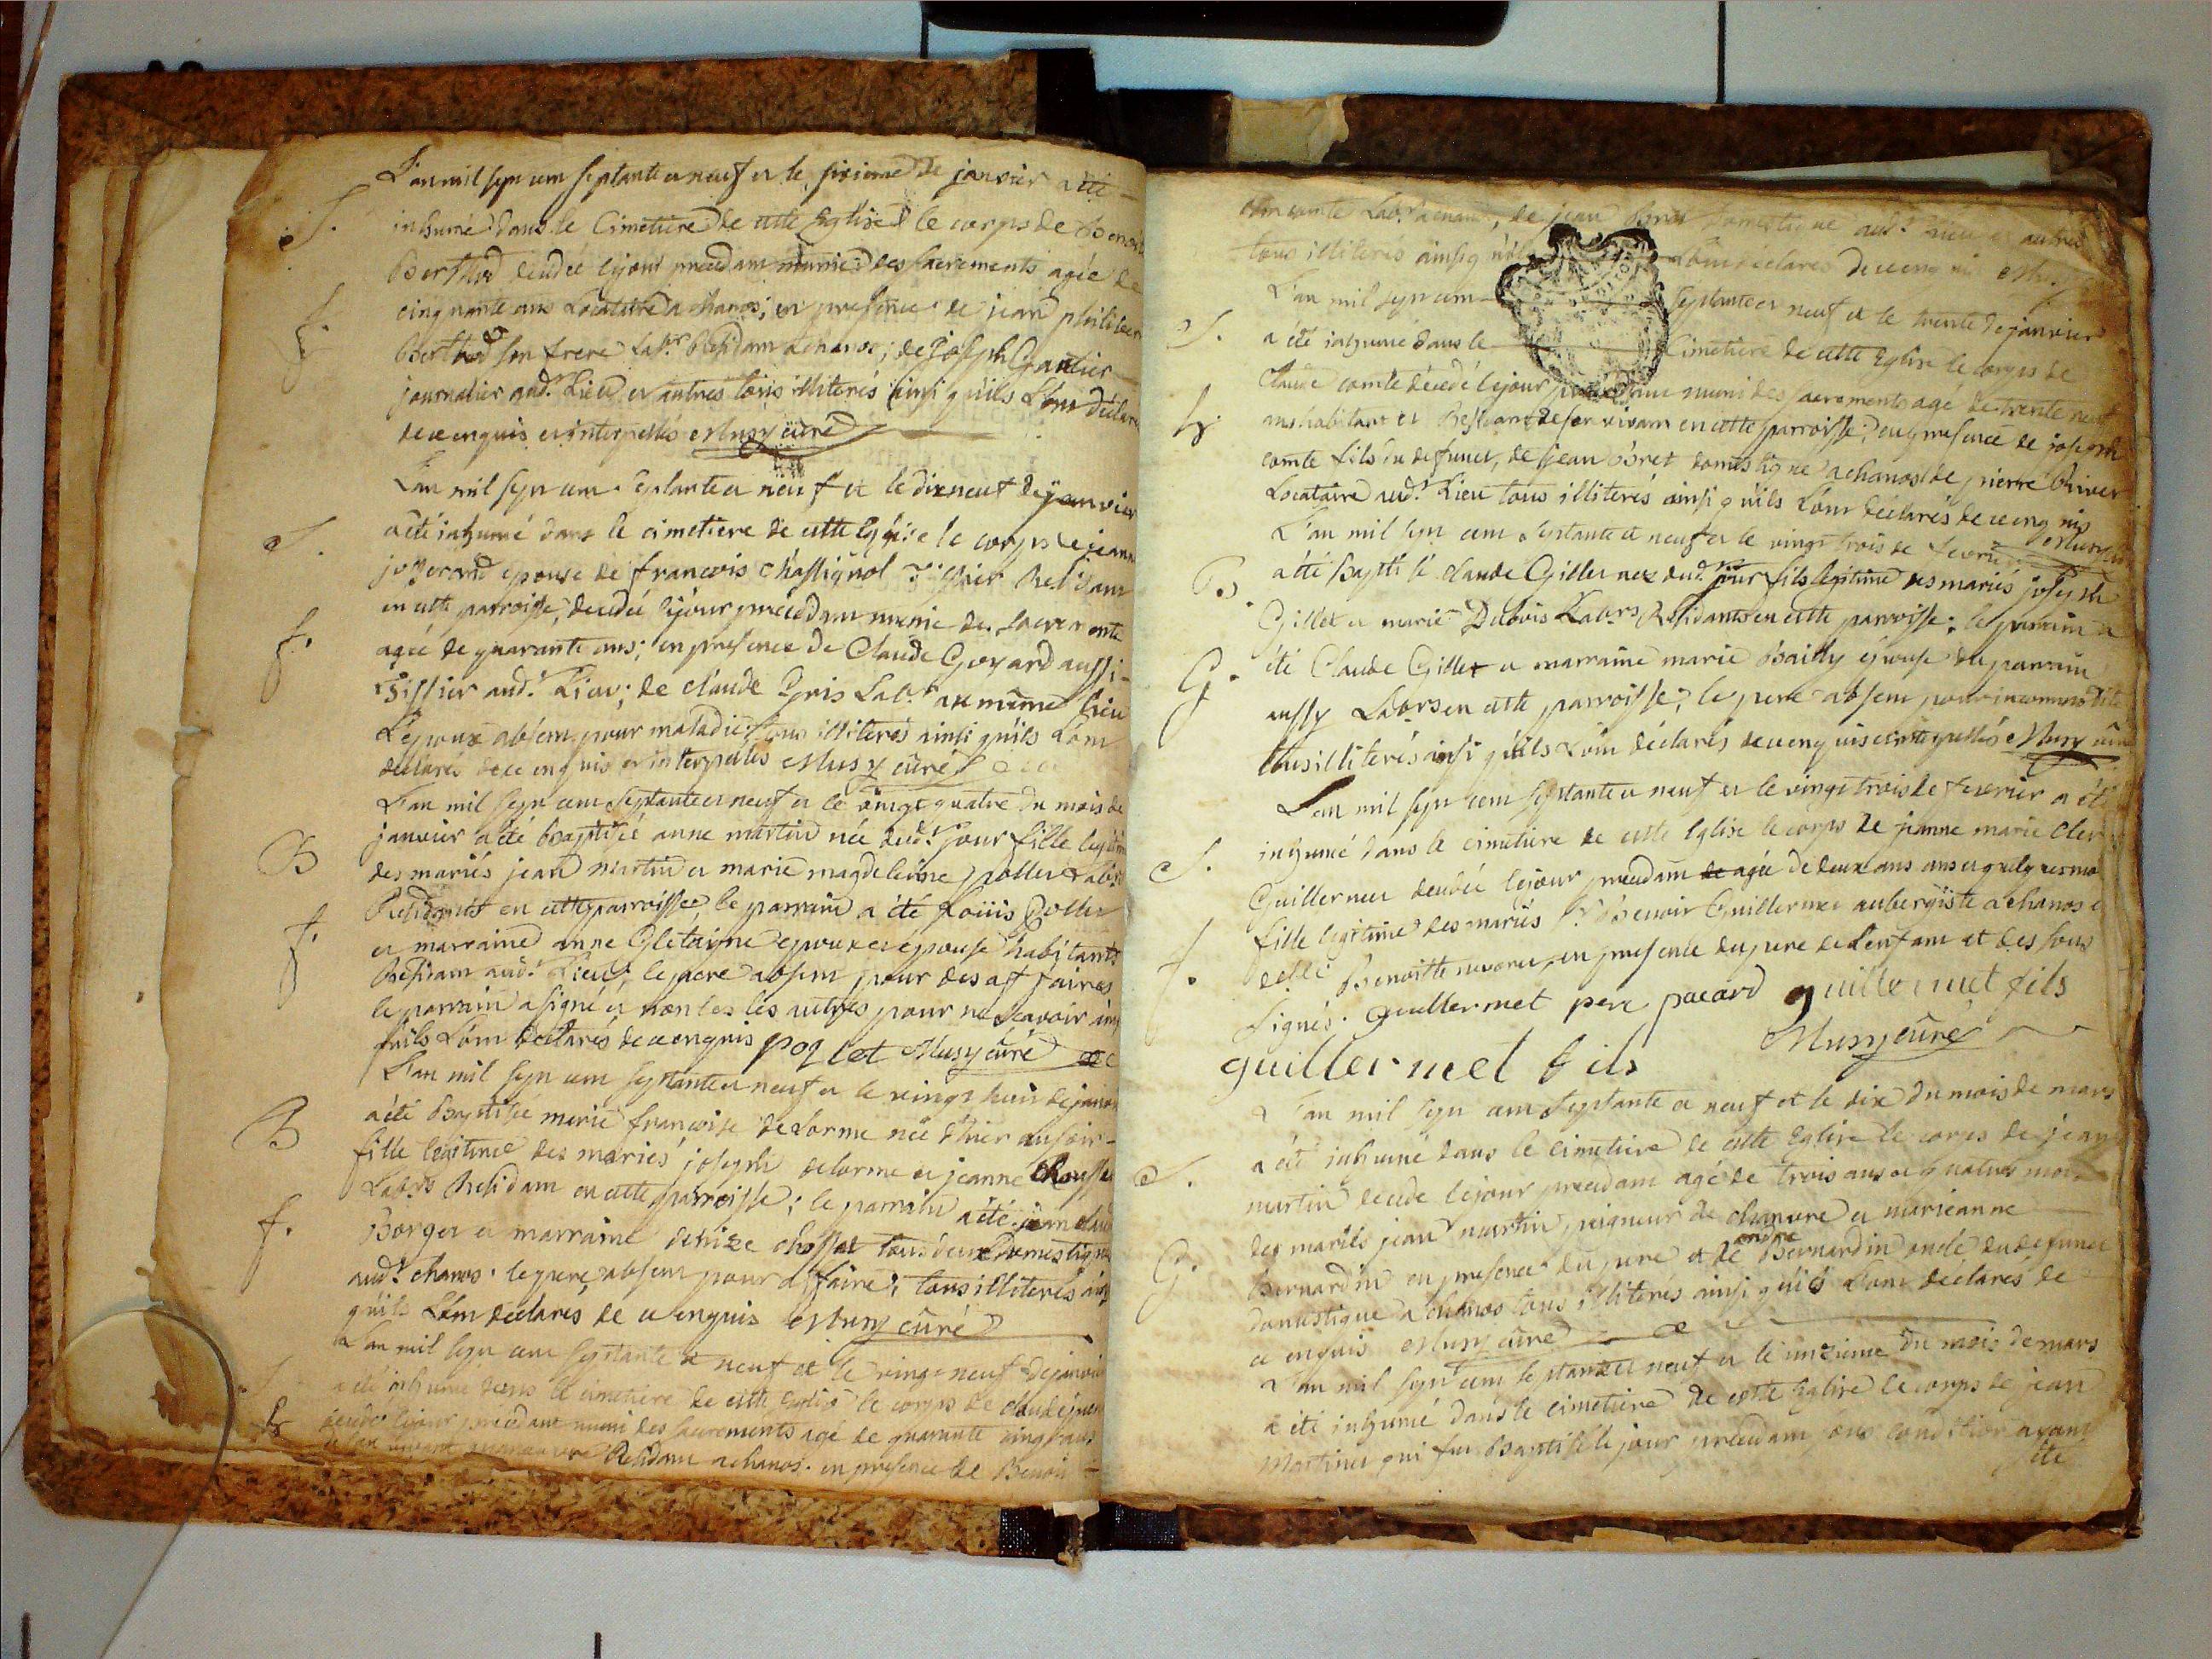 L'an mil sept cent septante et neuf et le sixieme de janvier a été
S. inhumé dans le Cimetiere de cette Eglise le corps de Benoit
Berthod decedée le jour precedant munie des sacrements agée de
f. cinquante ans Locataire a chanos; en presence de jean philiber
Berthod son frere Labr. Residant a chanos; de joseph Gautier
journalier aud. Lieu et autres tous illiterés ainsi qu'ils L'ont déclaré
de ce enquis et interpellés Musy curé
L'an mil sept cent septante et neuf et le dixneuf de janvier
S. a été inhumé dans le cimetiere de cette Eglise le corps de jeanne
epouse de francois Chassignol Tissier Residant
en cette parroisse, decedée le jour precedant munie des sacrements
f. agée de quarante ans; en presence de Claude Goyard aussi
Tissier aud. Lieu; de claude Gris Labr. au même Lieu
L'epoux absent pour maladie tous illiterés ainsi qu'ils L'ont
declarés de ce enquis et interpellés Musy curé
L'an mil sept cent septante et neuf et le vingt quatre du mois de
B janvier a été baptisée anne martin née dud. jour fille legitime
des mariés jean martin et marie magdeleine pollet Labrs
f. Residants en cette parroisse, le parrain a été Loüis pollet
et marraine anne epoux et epouse habitants
Residant aud. Lieu; le pere absent pour des affaires
le parrain a signé et non les les autres pour ne sçavoir ainsi
qu'ils L'ont déclarés de ce enquis pollet Musy curé
L'an mil sept cent septante et neuf et le vingt huit de janvier
B a été Baptisée marie francoise delorme née d'hier au soir
fille legitime des mariés joseph delorme et jeanne
Labrs Residant en cette parroisse; le parrain a été jean claude
f. Borget et marraine denize tous deux Domestiques
aud. chanos. le pere absent pour affaire; tous illiterés ainsi
qu'ils L'ont declarés de ce enquis Musy curé
L'an mil sept cent septante et neuf et le vingt neuf de janvier
S. a été inhumé dans le cimetiere de cette Eglise le corps de claude
h decedé le jour precedant muni des sacrements agé de quarante cinq ans
Residant a chanos. en presence de Benoit
comte Labr. a chanos, de jean Bret domestique aud. Lieu et autres
tous illiterés ainsi qu'ils L'ont déclarés de ce enquis Musy
L'an mil sept cent septante et neuf et le trente de janvier
S. a été inhumé dans le Cimetiere de cette Eglise le corps de
Claude comte décedé le jour precedant muni des sacrements agé de trente neuf
h ans habitant et Residant de son vivant en cette parroisse; en presence de joseph
comte fils du defunct, de jean Bret domestique a chanos de pierre
Locataire aud. Lieu tous illiterés ainsi qu'ils L'ont déclarés de ce enquis
Musy curé
L'an mil sept cent septante et neuf et le vingt trois de
B. a été Baptisé claude Gillet nez dud. jour fils legitime des mariés joseph
Gillet et marie Dubois Labrs Residants en cette parroisse; le parrain a
G. été Claude Gillet et marraine marie Bailly epouse du parrain
aussy Labrs en cette parroisse; le pere absent pour incommodité
tous illiterés ainsi qu'ils L'ont déclarés de ce enquis et interpellés Musy curé
L'an mil sept cent septante et neuf et le vingt trois de fevrier a été
S. inhumé dans le cimetiere de cette Eglise le corps de jeanne marie
Guillermet decedée le jour precedant agée de deux ans ans et quelques mois
fille legitime des mariés Sr. Benoit Guillermet aubergiste a chanos et
f. delle. Benoitte en presence du pere de L'enfant et des sous
signés. Guillermet pere pacard guillermet fils
guillermet fils Musy curé
L'an mil sept cent septante et neuf et le dix du mois de mars
S. a été inhumé dans le cimetiere de cette Eglise le corps de jean
martin decedé le jour precedant agé de trois ans et quatre mois
des mariés jean martin peigneur de chanvre et marieanne
G. Bernardin en presence du pere et de andré Bernardin oncle du defunct
domestique a chanos tous illiterés ainsi qu'ils L'ont déclarés de
ce enquis Musy curé
L'an mil sept cent septante et neuf et le unzieme du mois de mars
a été inhumé dans le cimetiere de cette Eglise le corps de jean
Martinet qui fut Baptisé le jour precedant sous condition ayant
été